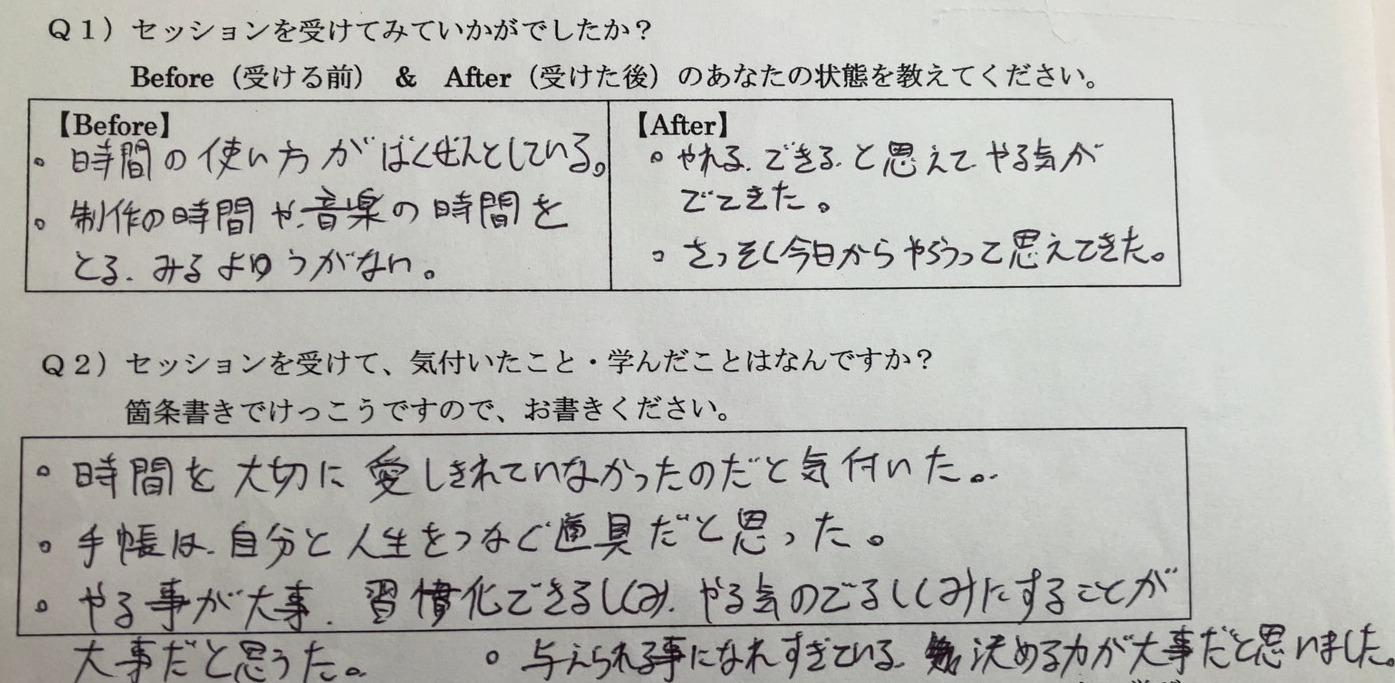 Ｑ１）セッションを受けてみていかがでしたか？
Before（受ける前） ＆ After（受けた後）のあなたの状態を教えてください。
【Before】
。時間の使い方がばくぜんとしている。
。制作の時間や、音楽の時間を
とる、みるよゆうがない。
【After】
。やれる、できる、と思えて、やる気が
でてきた。
。さっそく今日からやろうって思えてきた。
Ｑ２）セッションを受けて、気付いたこと・学んだことはなんですか？
箇条書きでけっこうですので、お書きください。
。時間を大切に愛しきれていなかったのだと気付いた。
。手帳は、自分と人生をつなぐ道具だと思った。
。やる事が大事、習慣化できるしくみ、やる気のでるしくみにすることが
大事だと思うた。 。与えられる事になれすぎている、決める力が大事だと思いました。